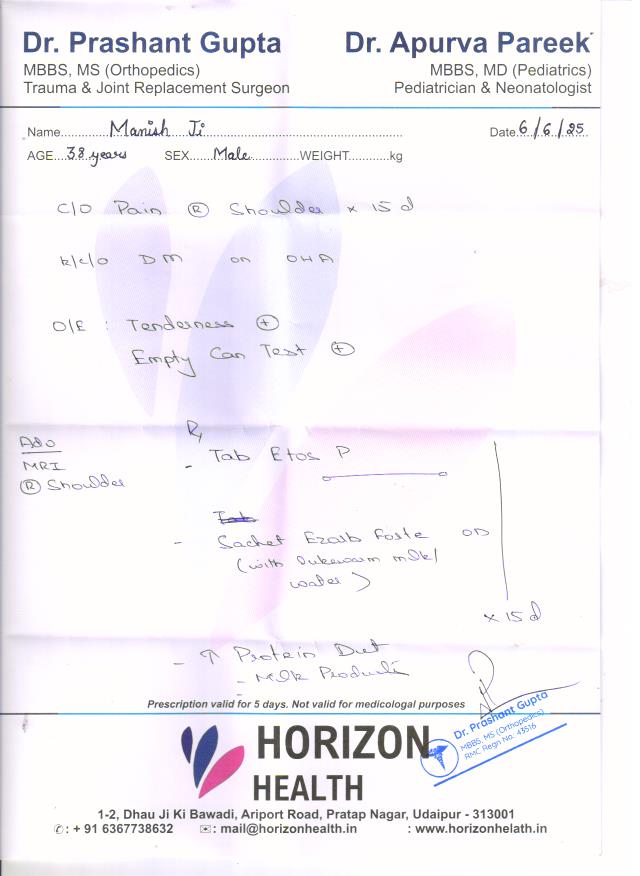 Dr. Prashant Gupta
MBBS, MS (Orthopedics)
Trauma & Joint Replacement Surgeon
Dr. Apurva Pareek
MBBS, MD (Pediatrics)
Pediatrician & Neonatologist
Name Manish Ji Date 6/6/25
AGE 38 years SEX Male WEIGHT kg
C/O Pain Ⓡ Shoulder x 15 d
K/C/O DM on OHA
O/E : Tenderness ⊕
Empty Can Test ⊕
Adv
MRI
Ⓡ Shoulder
Rx
- Tab Etos P
Tab
- Sachet Ezorb Forte OD
(with lukewarm milk/
water)
x 15 d
- ↑ Protein Diet
- Milk Products
Prescription valid for 5 days. Not valid for medicologal purposes
Dr. Prashant Gupta
MBBS, MS (Orthopedics)
RMC Regn No.: 43516
HORIZON
HEALTH
1-2, Dhau Ji Ki Bawadi, Ariport Road, Pratap Nagar, Udaipur - 313001
✆: + 91 6367738632 ✉: mail@horizonhealth.in : www.horizonhelath.in